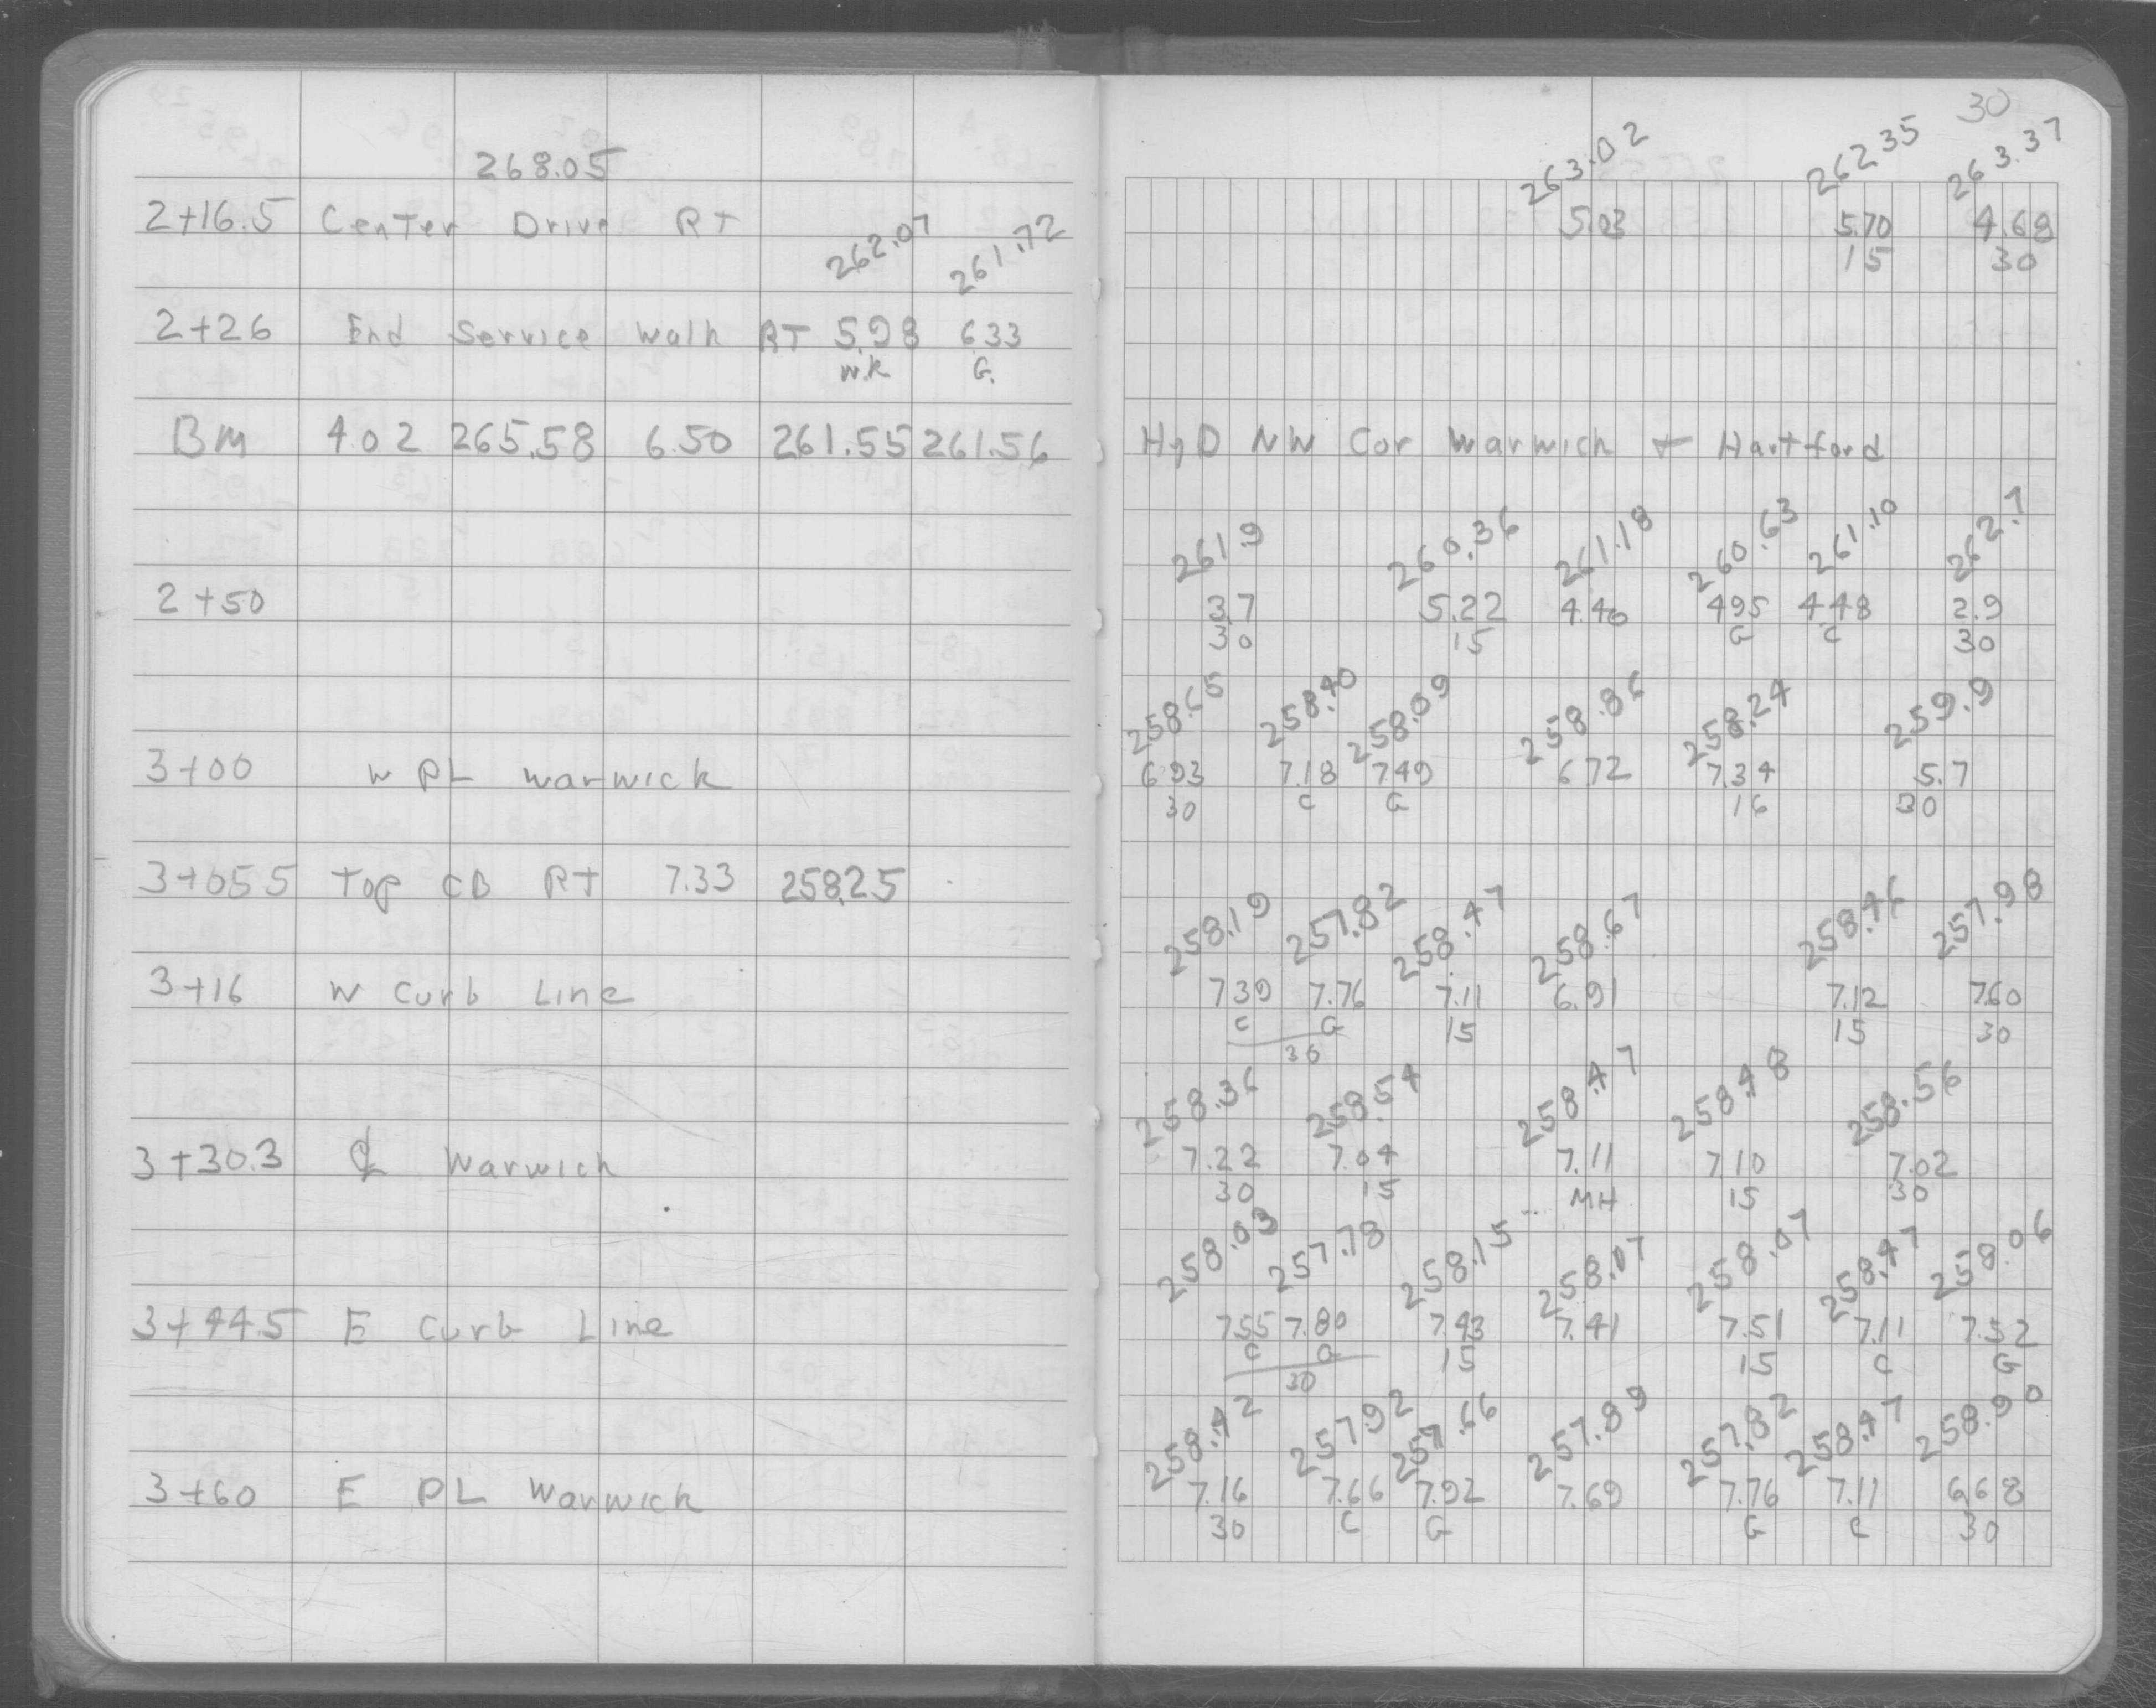 268.05
2+16.5 Center Drive RT
262.07 261.72
2+26 End Service Walk RT 5.98 6.33
W.K G.
BM 4.02 265.58 6.50 261.55 261.56
2+50
3+00 W PL Warwick
3+05 5 Top CB RT 7.33 258.25
3+16 W Curb Line
3+30.3 ℄ Warwick
3+44.5 E Curb Line
3+60 E PL Warwick
30
263.02 262.35 263.37
5.03 5.70 4.68
15 30
HyD NW Cor Warwick + Hartford
261.9 260.36 261.18 260.63 261.10 262.7
3.7 5.22 4.40 4.95 4.48 2.9
30 15 G C 30
258.65 258.40 258.09 258.86 258.24 259.9
6.93 7.18 7.49 6.72 7.34 5.7
30 C G 16 30
258.19 257.82 258.47 258.67 258.46 257.98
7.39 7.76 7.11 6.91 7.12 7.60
C G 15 15 30
30
258.36 258.54 258.47 258.48 258.56
7.22 7.04 7.11 7.10 7.02
30 15 MH 15 30
258.03 257.78 258.15 258.07 258.07 258.47 258.06
7.55 7.80 7.43 7.41 7.51 7.11 7.52
C G 15 15 C G
30
258.42 257.92 257.66 257.89 257.82 258.47 258.90
7.16 7.66 7.92 7.69 7.76 7.11 6.68
30 C G G C 30